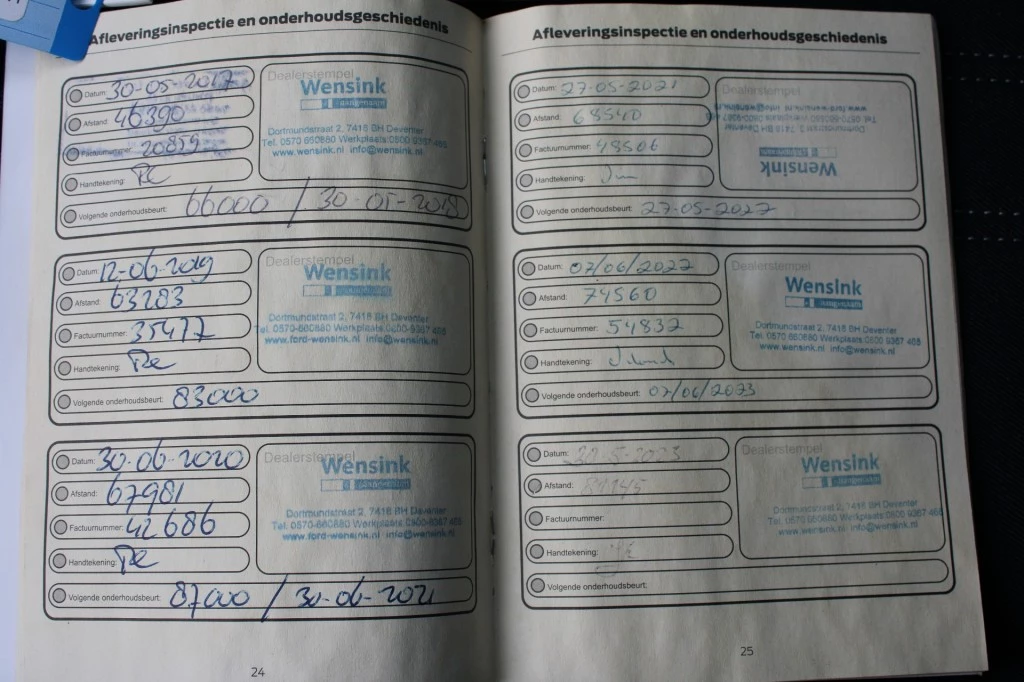 Afleveringsinspectie en onderhoudsgeschiedenis
Datum: 30-05-2017
Afstand: 46390
Factuurnummer: 20859
Handtekening:
Volgende onderhoudsbeurt: 66000 / 30-05-2018
Dealerstempel
Wensink
Dortmundstraat 2, 7418 BH Deventer
Tel. 0570-660680 Werkplaats: 0800-9367 466
www.wensink.nl info@wensink.nl
Datum: 12-06-2019
Afstand: 63283
Factuurnummer: 35477
Handtekening:
Volgende onderhoudsbeurt: 83000
Dealerstempel
Wensink
Dortmundstraat 2, 7418 BH Deventer
Tel. 0570-660680 Werkplaats 0800-9367 466
www.ford-wensink.nl info@wensink.nl
Datum: 30-06-2020
Afstand: 67981
Factuurnummer: 42686
Handtekening:
Volgende onderhoudsbeurt: 87000 / 30-06-2021
Dealerstempel
Wensink
Dortmundstraat 2, 7418 BH Deventer
Tel. 0570-660680 Werkplaats: 0800-9367 466
www.ford-wensink.nl info@wensink.nl
24
Afleveringsinspectie en onderhoudsgeschiedenis
Datum: 27-05-2021
Afstand: 68540
Factuurnummer: 48506
Handtekening:
Volgende onderhoudsbeurt: 27-05-2022
Dealerstempel
Wensink
Dortmundstraat 2, 7418 BH Deventer
www.ford-wensink.nl info@wensink.nl
Datum: 07/06/2022
Afstand: 74560
Factuurnummer: 54832
Handtekening:
Volgende onderhoudsbeurt: 07/06/2023
Dealerstempel
Wensink
Dortmundstraat 2, 7418 BH Deventer
Tel. 0570-660680 Werkplaats 0800 9367 466
www.wensink.nl info@wensink.nl
Datum: 5-2023
Afstand: 81145
Factuurnummer:
Handtekening:
Volgende onderhoudsbeurt:
Dealerstempel
Wensink
Dortmundstraat 2, 7418 BH Deventer
Tel. 0570-660680 Werkplaats 0800-9367 466
www.wensink.nl info@wensink.nl
25